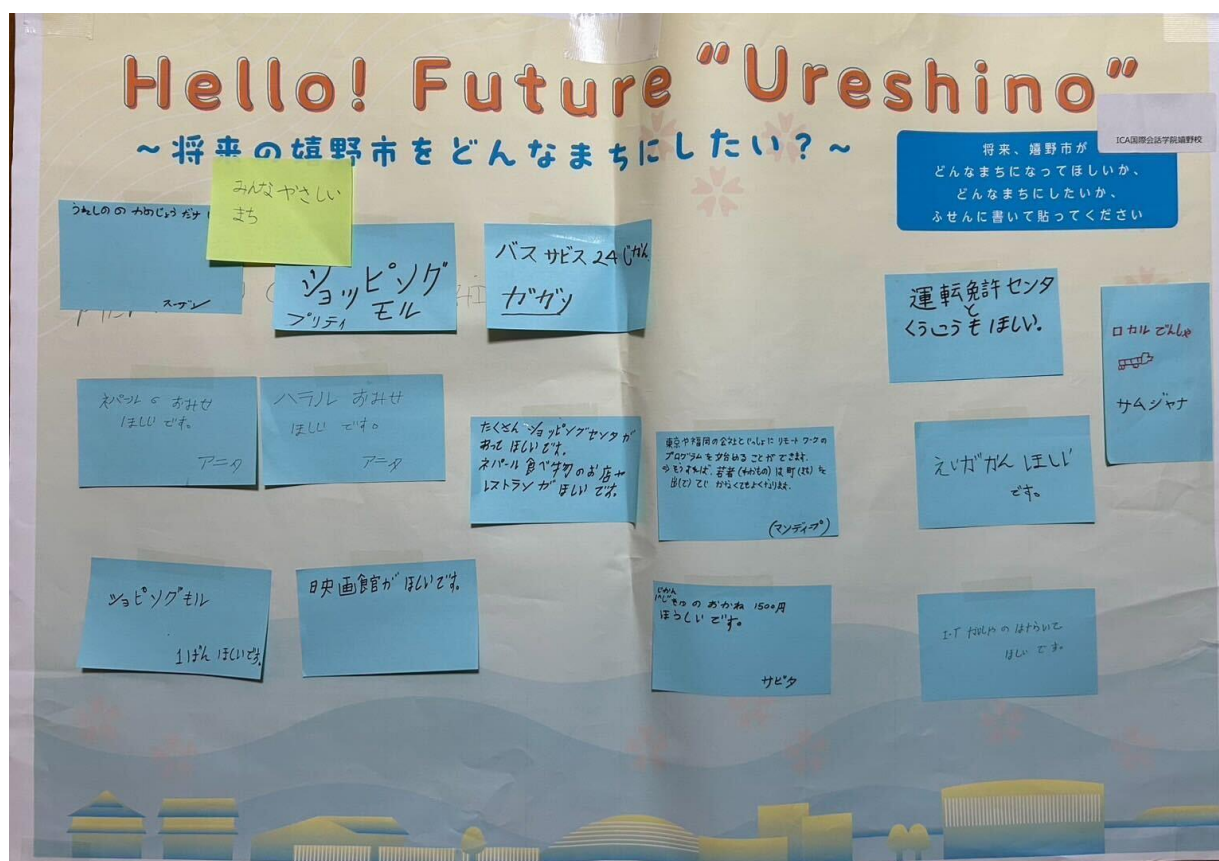 Hello! Future "Ureshino"
～将来の嬉野市をどんなまちにしたい？～
ICA国際会話学院嬉野校
将来、嬉野市が
どんなまちになってほしいか、
どんなまちにしたいか、
ふせんに書いて貼ってください
みんなやさしい
まち
スーブン
ショッピング
モル
プリティ
バス サビス 24じかん
ガガン
運転免許センタ
と
くうこうもほしい。
ロカルでんしゃ
サムジャナ
ネパールの おみせ
ほしい です。
アニタ
ハラル おみせ
ほしい です。
アニタ
たくさん ショッピングセンタが
あって ほしいです。
ネパール食べ物のお店や
レストランがほしいです。
東京や福岡の会社といっしょに リモートワークの
プログラムを始めることができます。
そうすれば、若者(わかもの)は町(まち)を
出(で)て
なくてもよくなります。
(マンディープ)
えいががん ほしい
です。
ショピングモル
1ばん ほしいです。
映画館が ほしいです。
じかん
のおかね 1500円
ほうしいです。
サビタ
ほしい です。